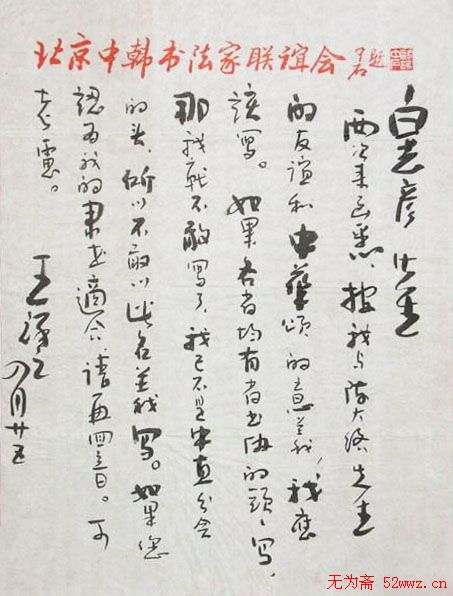 北京中韩书法家联谊会
白光彦先生
两次来函悉，按我与陈大络先生
的友谊和中华颂的意义，我应
该写。如果各省均有省书协的头头写，
那我就不敢写了，我已不是中直分会
的头，所以不敢以此名义我写。如果您
认为我的隶书适合，请再回音。可
考虑。
王
四月廿五
无为斋 52wwz.cn